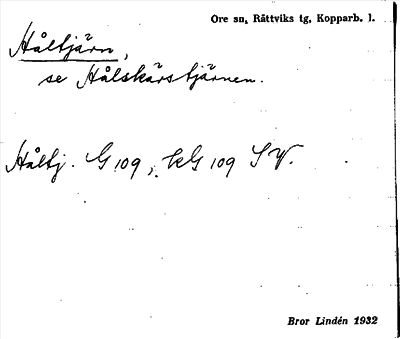 Ore sn, Rättviks tg, Kopparb. l.
Håltjärn,
se Hålskärstjärnen.
Håltj. G 109, kG 109 SV.
Bror Lindén 1932